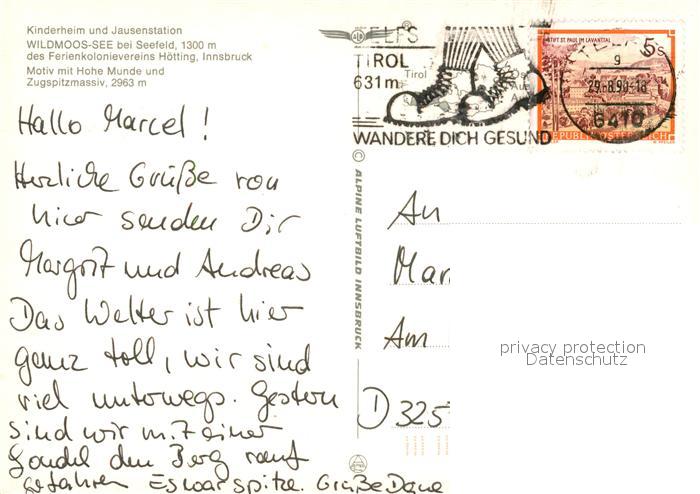 Kinderheim und Jausenstation
WILDMOOS-SEE bei Seefeld, 1300 m
des Ferienkolonievereins Hötting, Innsbruck
Motiv mit Hohe Munde und
Zugspitzmassiv, 2963 m
Hallo Marcel!
Herzliche Grüße von
hier senden Dir
Margrit und Andreas
Das Wetter ist hier
ganz toll, wir sind
viel unterwegs. Gestern
sind wir mit einer
Gondel den Berg rauf
gefahren Es war spitze. Grüße Dane
© ALPINE LUFTBILD INNSBRUCK
TELFS
TIROL
631m
Tirol
WANDERE DICH GESUND
STIFT ST. PAUL IM LAVANTTAL
5s
REPUBLIK ÖSTERREICH
g
29.-8.90-18
6410
An
Mar
Am
D 325
privacy protection
Datenschutz